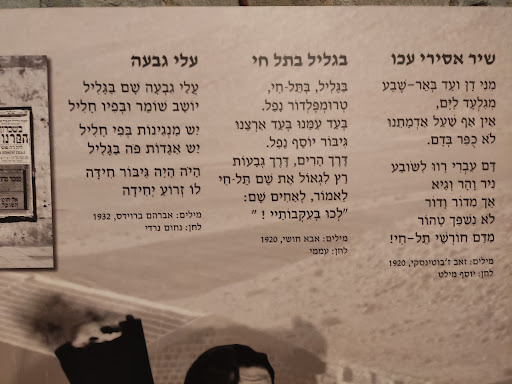 שיר אסירי עכו
מִנִּי דָן וְעַד בְּאֵר–שֶׁבַע
מִגִּלְעָד לַיָּם,
אֵין אַף שַׁעַל אַדְמָתֵנוּ
לֹא כֻפַּר בְּדָם.
דָּם עִבְרִי רָווּ לְשׂוֹבַע
נִיר וְהַר וָגַיְא
אַךְ מִדּוֹר וָדוֹר
לֹא נִשְׁפַּךְ טָהוֹר
מִדָּם חוֹרְשֵׁי תֵל–חַי!
מילים: זאב ז'בוטינסקי, 1920
לחן: יוסף מילט
בגליל בתל חי
בַּגָּלִיל, בְּתֵל-חַי,
טְרוּמְפֶּלְדּוֹר נָפַל.
בְּעַד עַמֵּנוּ בְּעַד אַרְצֵנוּ
גִּיבּוֹר יוֹסֵף נָפַל.
דֶּרֶךְ הָרִים, דֶּרֶךְ גְּבָעוֹת
רָץ לִגְאוֹל אֶת שֵׁם תֵּל-חַי
לֵאמוֹר, לָאַחִים שָׁם:
"לְכוּ בְּעִקְבוֹתַיי ! "
מילים: אבא חושי, 1920
לחן: עממי
עלי גבעה
עֲלֵי גִבְעָה שָׁם בַּגָּלִיל
יוֹשֵׁב שׁוֹמֵר וּבְפִיו חָלִיל
יֵשׁ מַנְגִּינוֹת בְּפִי חָלִיל
יֵשׁ אַגָּדוֹת פֹּה בַּגָּלִיל
הָיֹה הָיָה גִּיבּוֹר חִידָה
לוֹ זְרוֹעַ יְחִידָה
מילים: אברהם ברוידס, 1932
לחן: נחום נרדי